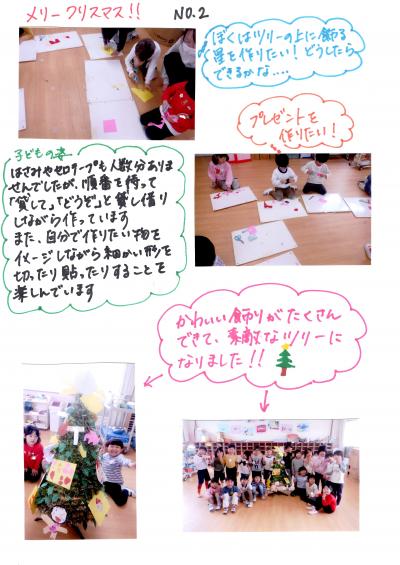 メリークリスマス!! NO.2
ぼくはツリーの上に飾る
星を作りたい!どうしたら
できるかな....
プレゼントを
作りたい!
子どもの姿
はさみやセロテープも人数分ありま
せんでしたが、順番を待って
「貸して」「どうぞ」と貸し借り
しながら作っています
また、自分で作りたい物を
イメージしながら細かい形を
切ったり貼ったりすることを
楽しんでいます
かわいい飾りがたくさん
できて、素敵なツリーに
なりました!!